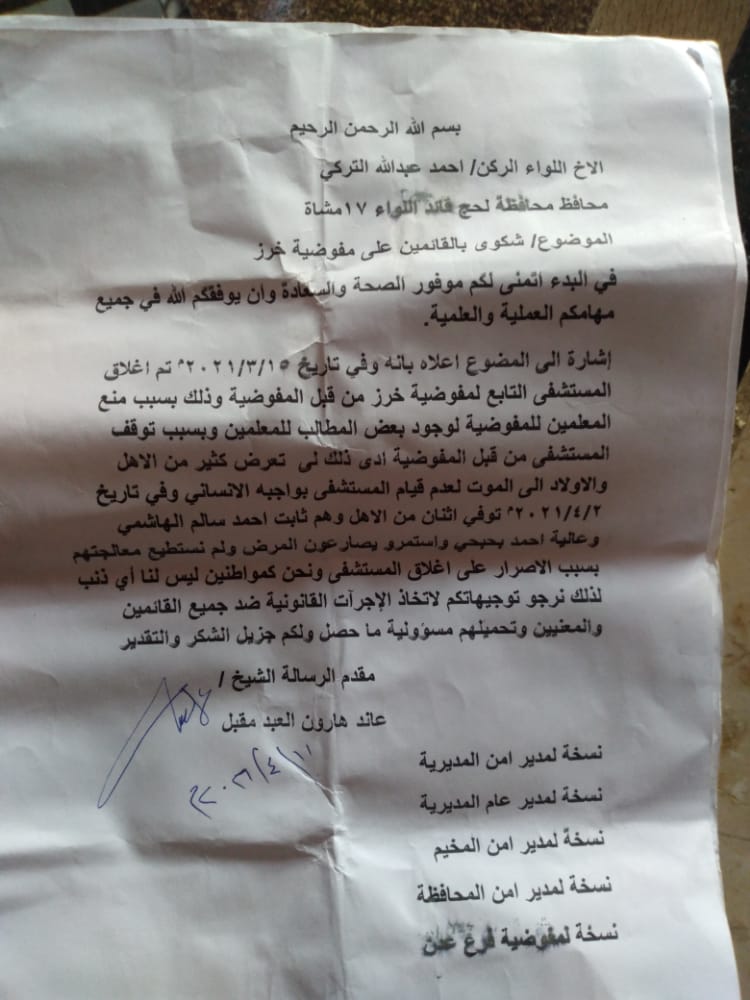 بسم الله الرحمن الرحيم
الاخ اللواء الركن/ احمد عبدالله التركي
محافظ محافظة لحج قائد اللواء ١٧مشاة
الموضوع/ شكوى بالقائمين على مفوضية خرز
في البدء اتمنى لكم موفور الصحة والسعادة وان يوفقكم الله في جميع
مهامكم العملية والعلمية.
إشارة الى المضوع اعلاه بانه وفي تاريخ ٢٠٢١/٣/١٥م تم اغلاق
المستشفى التابع لمفوضية خرز من قبل المفوضية وذلك بسبب منع
المعلمين للمفوضية لوجود بعض المطالب للمعلمين وبسبب توقف
المستشفى من قبل المفوضية ادى ذلك لى تعرض كثير من الاهل
والاولاد الى الموت لعدم قيام المستشفى بواجبه الانساني وفي تاريخ
٢٠٢١/٤/٢م توفي اثنان من الاهل وهم ثابت احمد سالم الهاشمي
وعالية احمد بحبحي واستمرو يصارعون المرض ولم نستطيع معالجتهم
بسبب الاصرار على اغلاق المستشفى ونحن كمواطنين ليس لنا أي ذنب
لذلك نرجو توجيهاتكم لاتخاذ الإجرآت القانونية ضد جميع القائمين
والمعنيين وتحميلهم مسؤولية ما حصل ولكم جزيل الشكر والتقدير
مقدم الرسالة الشيخ /
عاند هارون العبد مقبل
٢٠٢١/٤/١١م
نسخة لمدير امن المديرية
نسخة لمدير عام المديرية
نسخة لمدير امن المخيم
نسخة لمدير امن المحافظة
نسخة لمفوضية فرع عدن